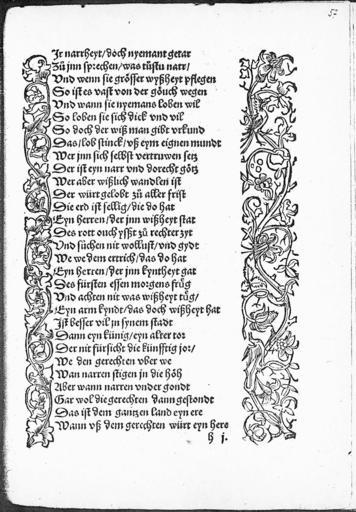 5.
Ir narrheyt/ doch nyemant getar
Zů jnn sprechen/ was tůstu narr/
Vnd wenn sie grösser wyßheyt pflegen
So ist es vast von der göuch wegen
Vnd wann sie nyemans loben wil
So loben sie sich dick vnd vil
So doch der wiß man gibt vrkund
Das/ lob stinck/ vß eym eignen mundt
Wer jnn sich selbst vertruwen setz
Der ist eyn narr vnd dorecht götz
Wer aber wißlich wandlen ist
Der würt gelobt zů aller frist
Die erd ist sellig/ die do hat
Eyn herren/ der jnn wißheyt stat
Des rott ouch yßßt zů rechter zyt
Vnd sůchen nit wollust/ vnd gydt
We we dem ertrich/ das do hat
Eyn herren/ der jnn kyntheyt gat
Des fürsten essen morgens frůg
Vnd achten nit was wißheyt tůg/
Eyn arm kyndt/ das doch wißheyt hat
Ist besser vil jn synem stadt
Dann eyn künig/ eyn alter tor
Der nit fürsicht die künfftig jor/
We den gerechten vber we
Wan narren stigen in die höh
Aber wann narren vnder gondt
Gar wol die gerechten dann gestondt
Das ist dem gantzen land eyn ere
Wann vß dem gerechten würt eyn here
h j.